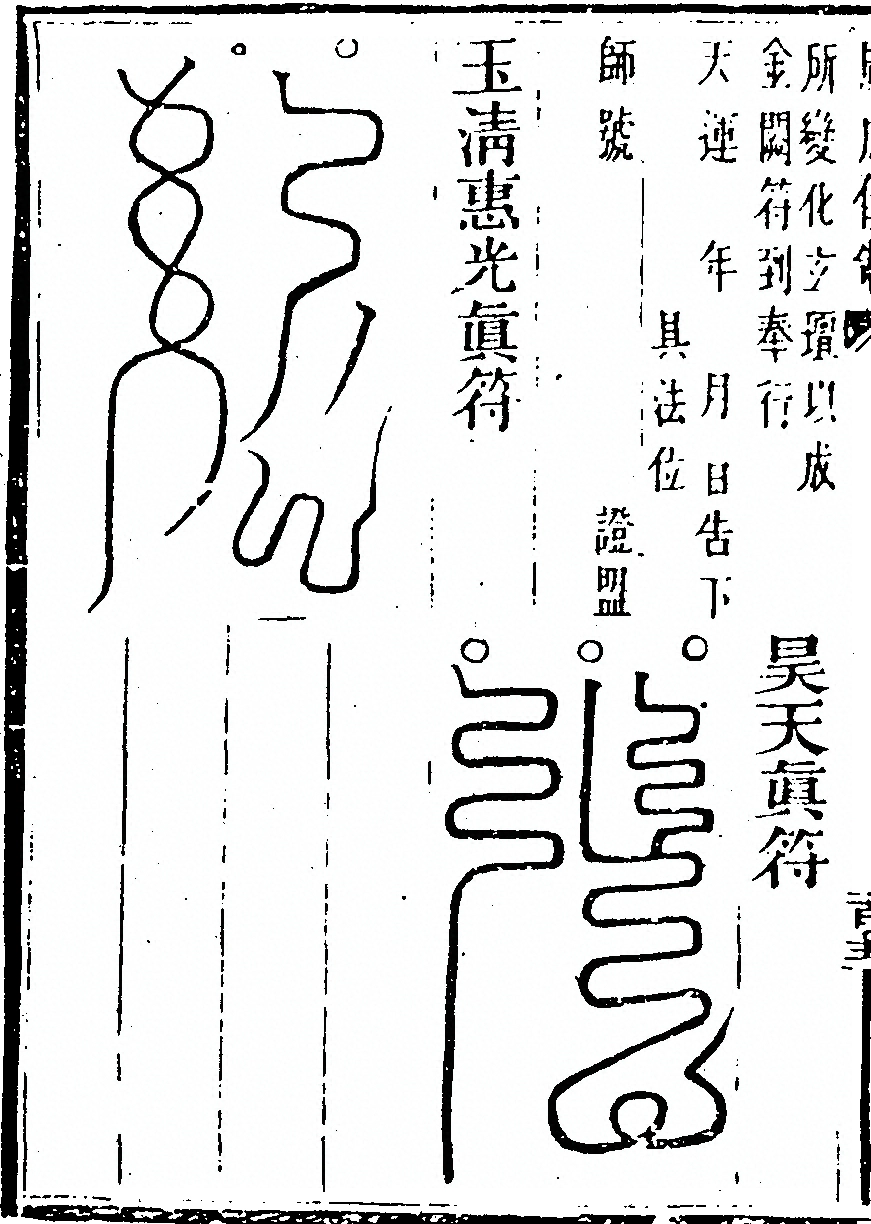 所變化立壇以成
金闕符到奉行
天運 年 月 日告下
具法位
師號 證盟
昊天眞符
玉清惠光眞符